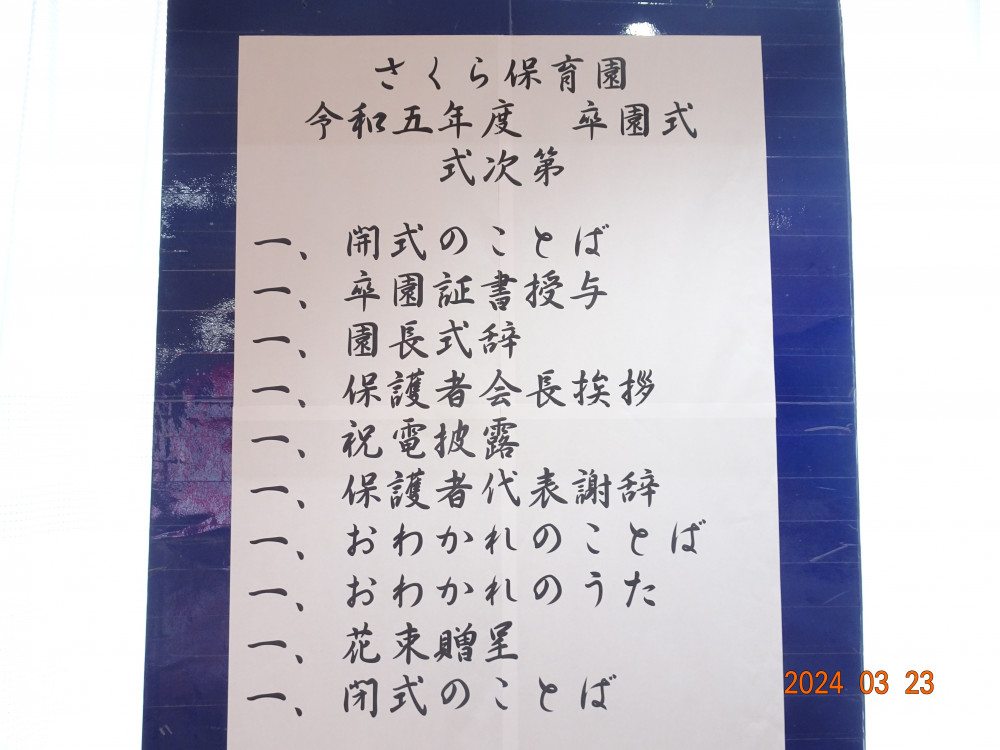 さくら保育園
令和五年度　卒園式
式次第
一、開式のことば
一、卒園証書授与
一、園長式辞
一、保護者会長挨拶
一、祝電披露
一、保護者代表謝辞
一、おわかれのことば
一、おわかれのうた
一、花束贈呈
一、閉式のことば
2024 03 23